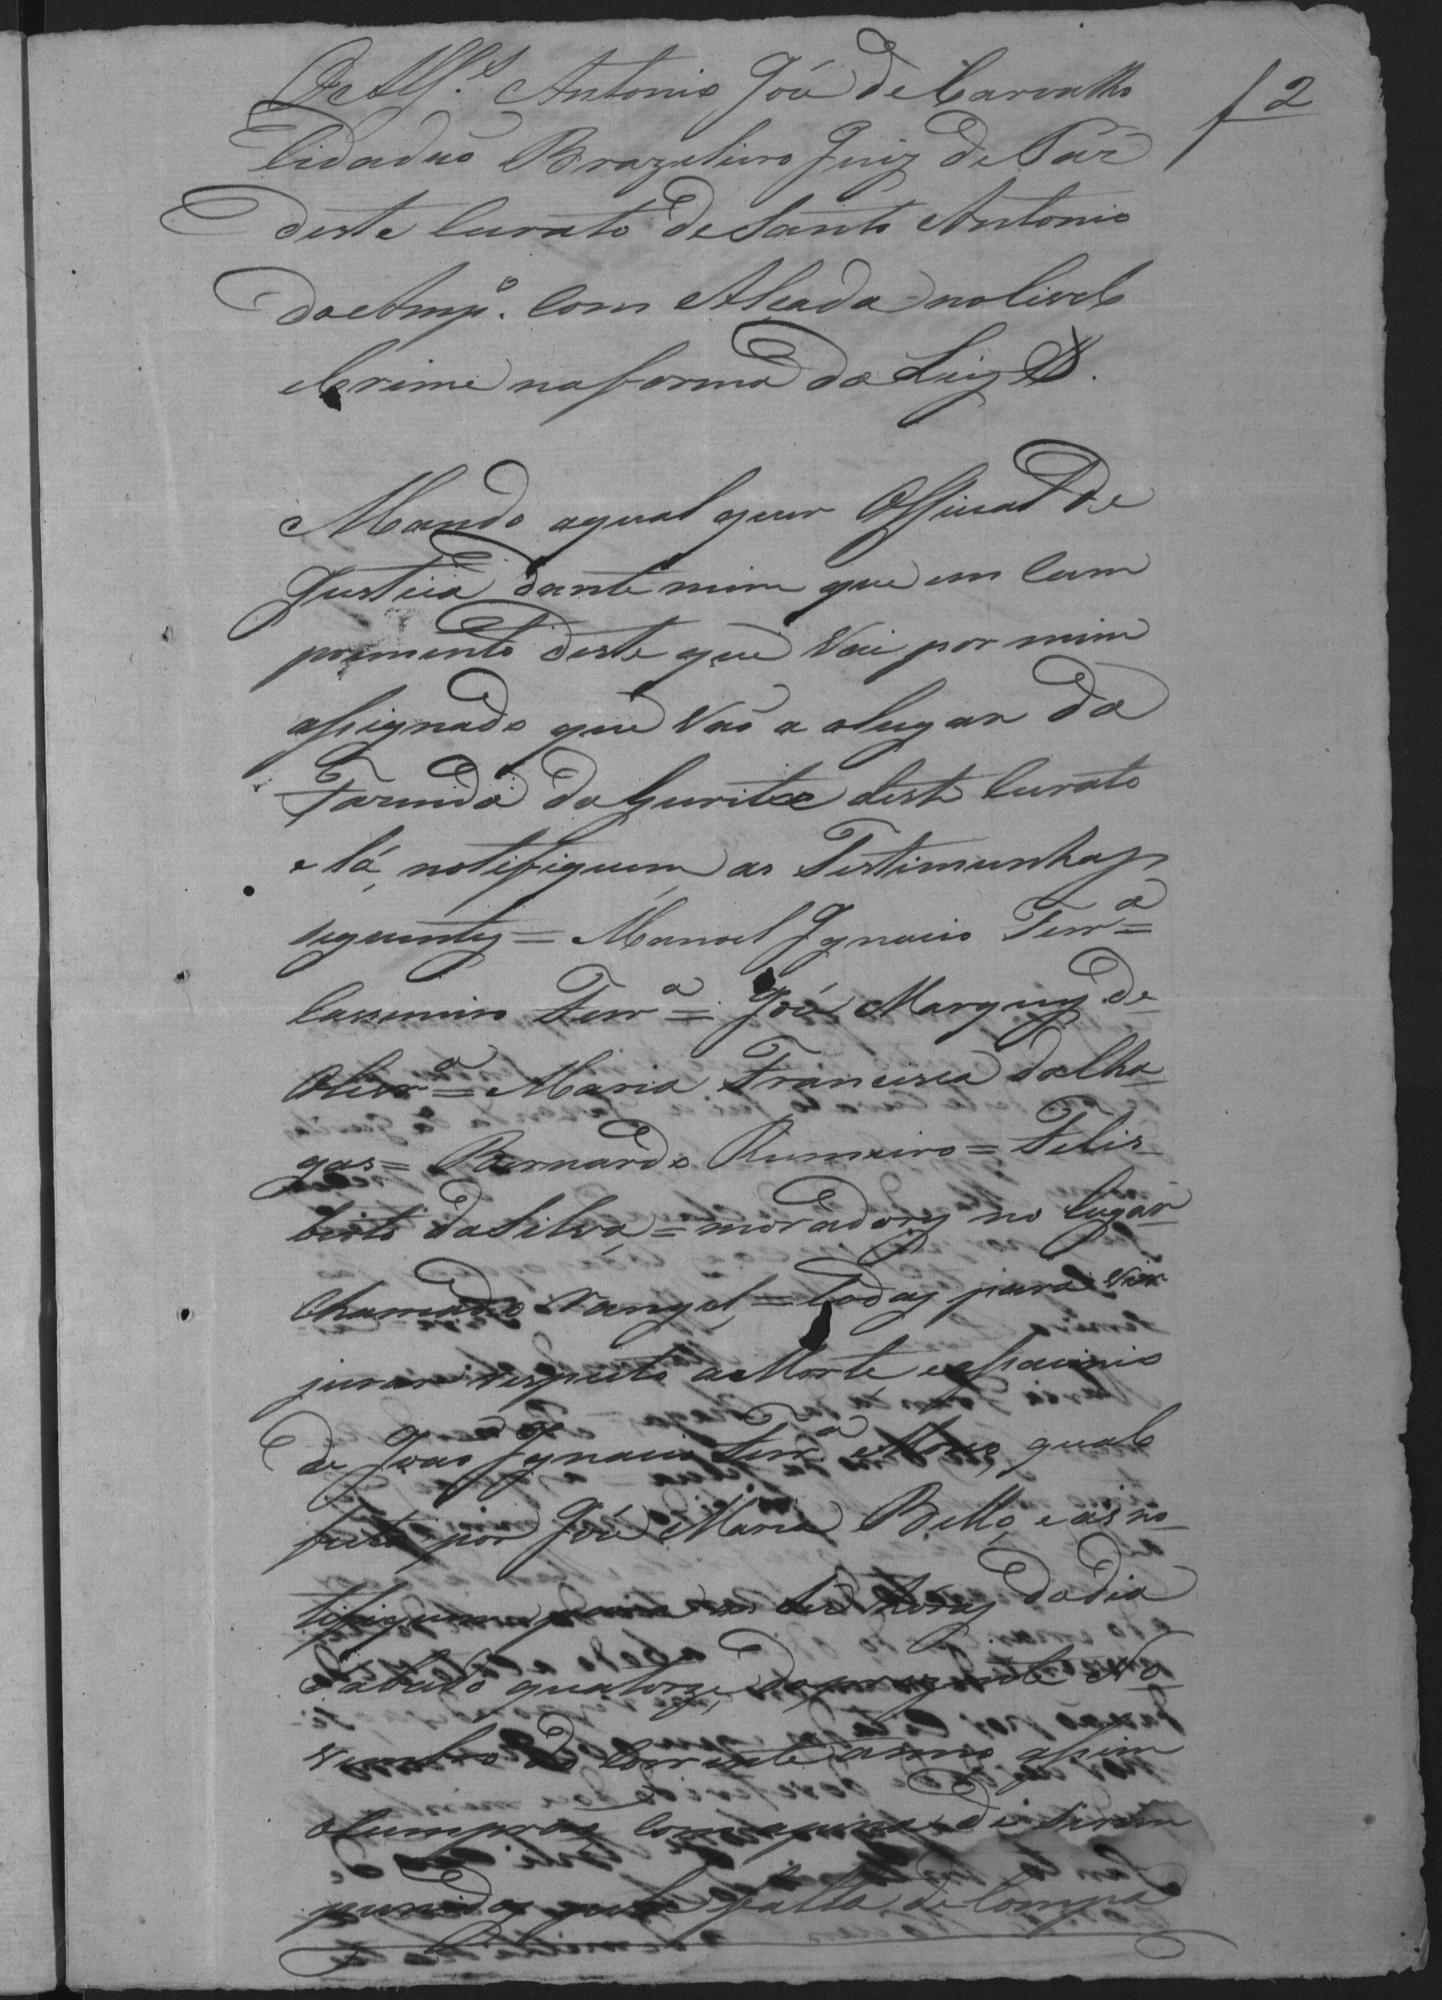 f 2
O Alf.s Antonio José de Carvalho
Cidadaõ Brazileiro Juiz de Paz
deste Curato de Santo Antonio
do Amp.o Com Alçada no Civel e
Crime na forma da Ley &.
Mando aqual quer Official de
Justiça dante mim que em Cum
primento deste que vai por mim
assignado que vaõ a olugar da
Fazenda da Gurita deste Curato
e lá notifiquem as Testimunhas
seguintes = Manoel Ignacio Ferr.a =
Cassemiro Ferr.a = José Marques de
Olivr.a = Maria Francisca da Cha
gas = Bernardo Rumeiro = Felis
berto da Silva = moradores no lugar
chamado Rangel, = todas para vir
jurar respeito a Morte, e assacinio
de Joaõ Ignacio Ferr.a Moço, qual e
feito por José Maria Bello, e as no
tifiquem para as seis horas do dia
Sabado quatorze, do prezente No
vembro do Corrente anno, assim
o Cumpraõ Com a pena de serem
punidos pela falta de Compa